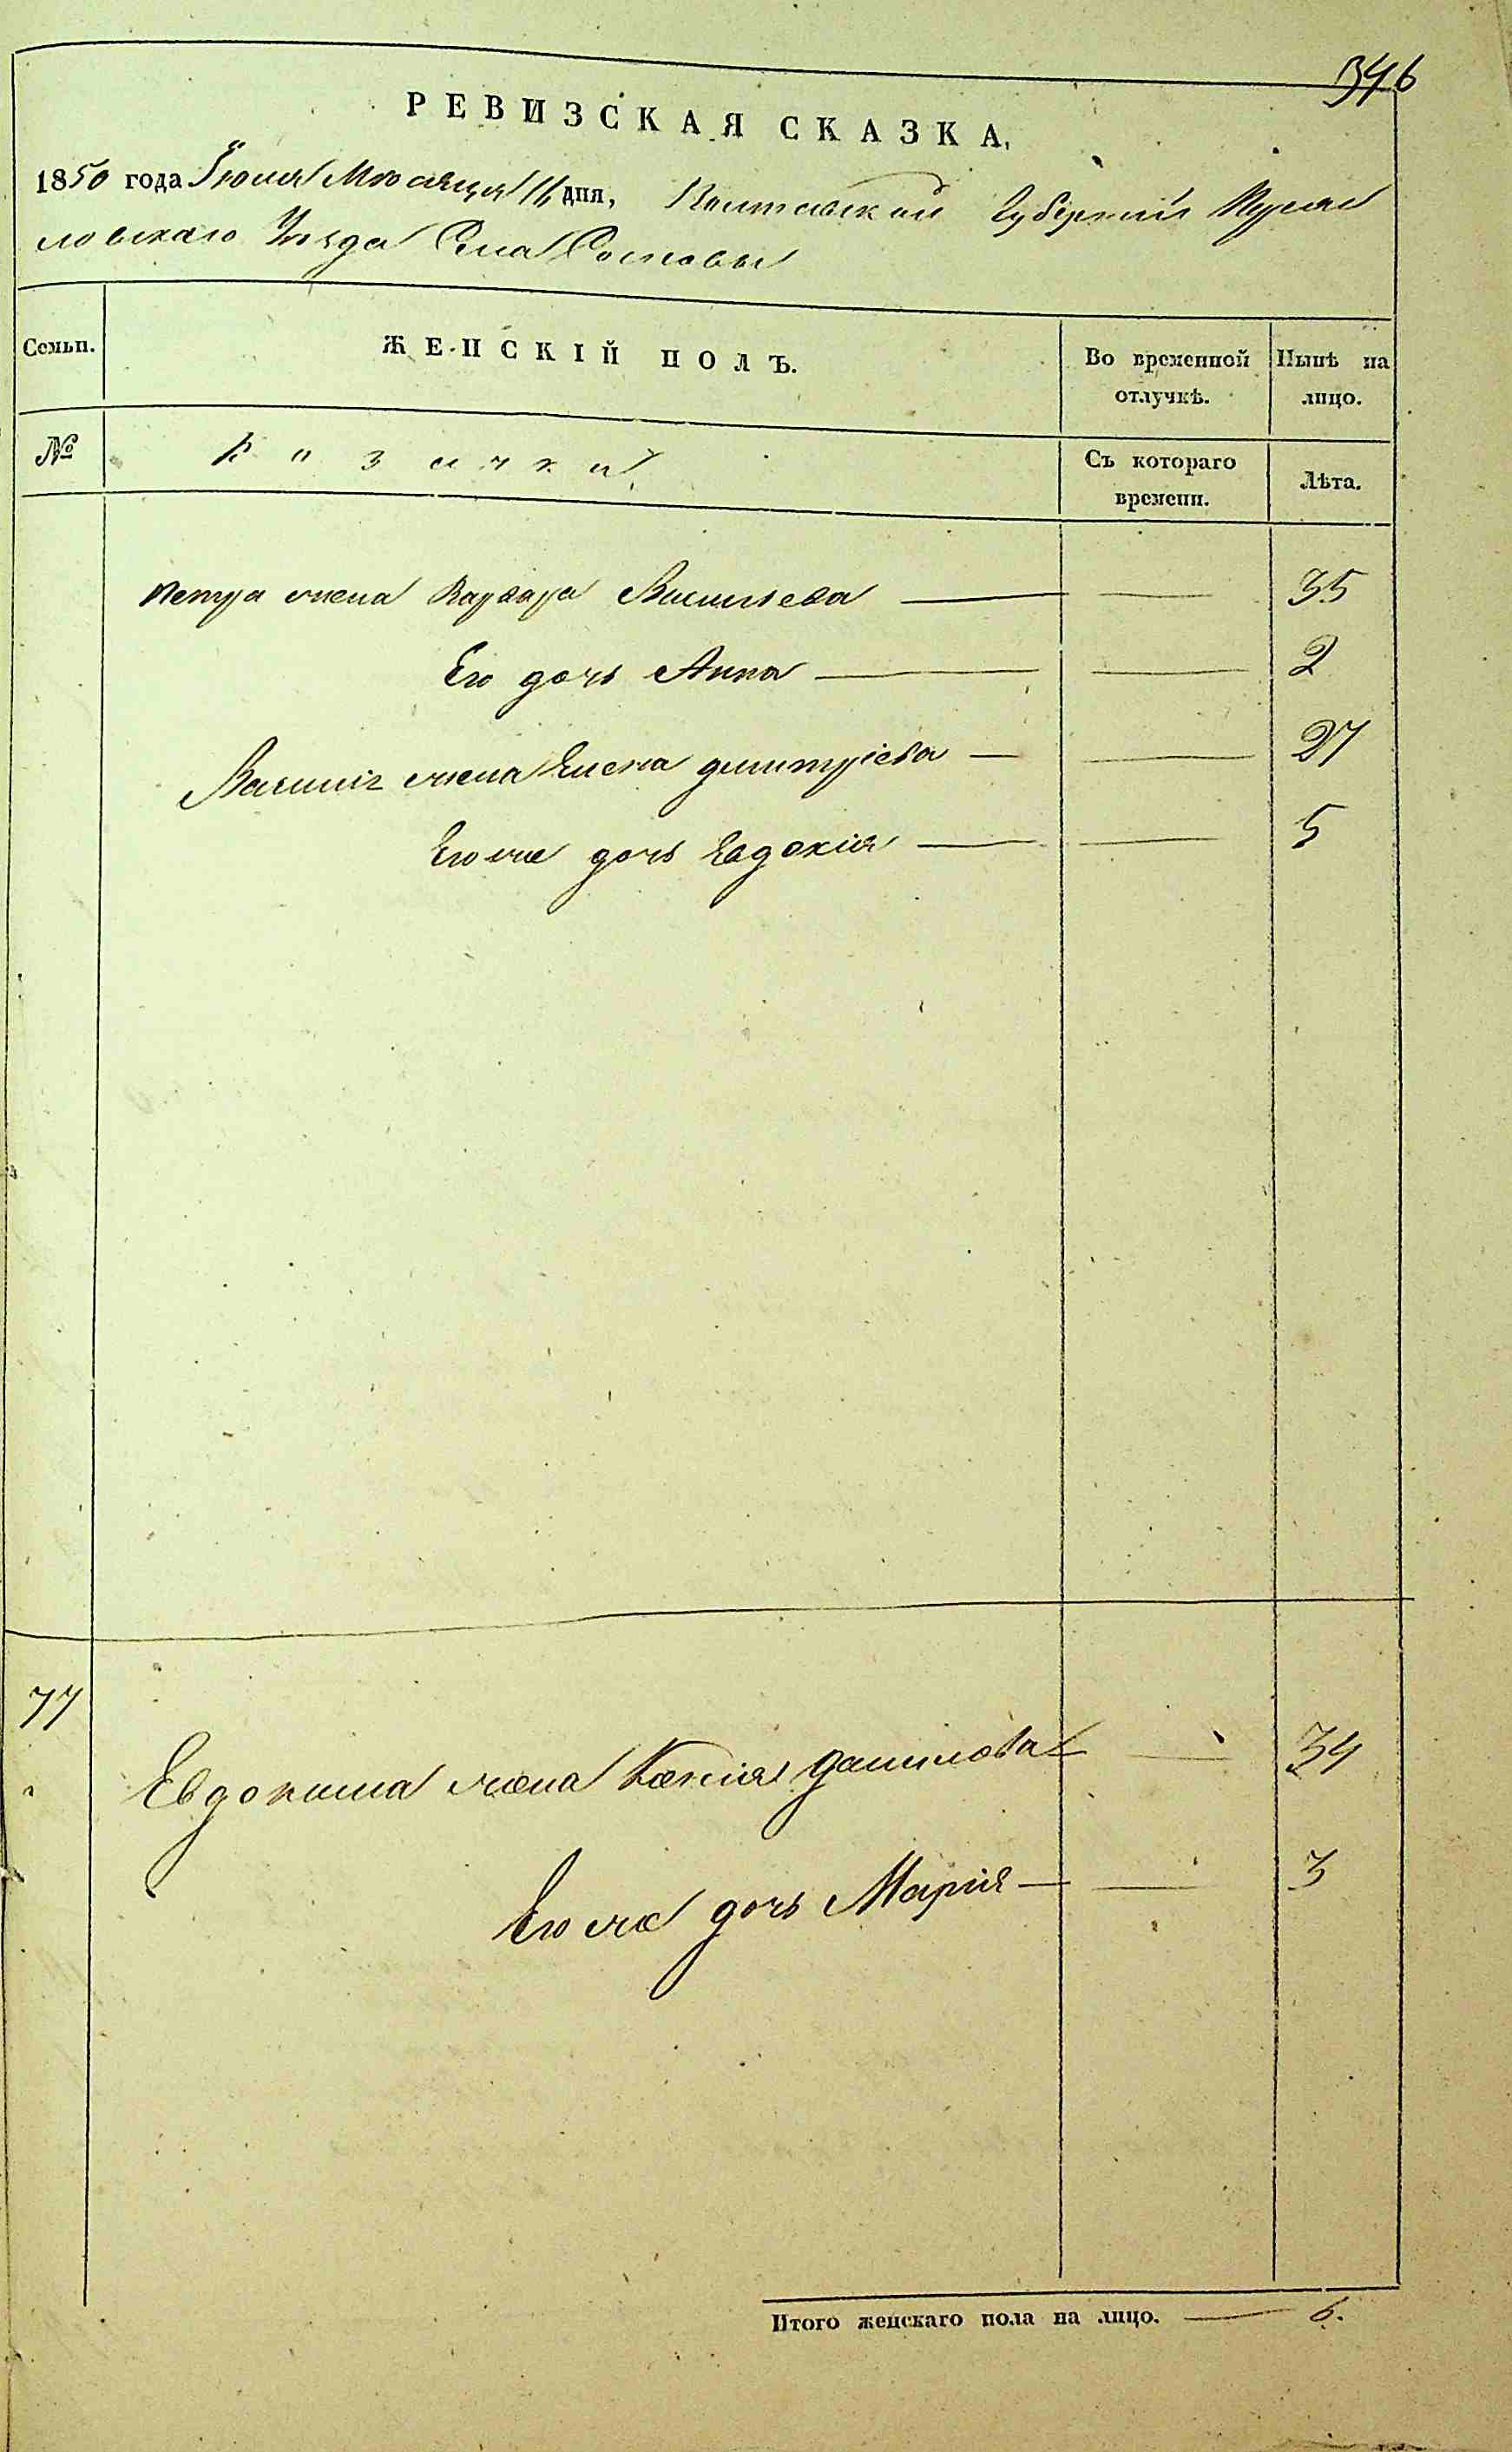 346
РЕВИЗСКАЯ СКАЗКА.
1850 года Іюля Мѣсяца 16 дня, Полтавской Губерніи Переяс
ловскаго Уезда Села Сосновы
Семьи. ЖЕНСКІЙ ПОЛЪ. Во временной отлучкѣ. Нынѣ на лицо.
№ Козачки Съ котораго времени. Лѣта.
Петра жена Варвара Васильева — — 35
Его дочь Анна — — 2
Василія жена Елена димитріева — — 27
Его же дочь Евдокія — — 5
77
Евдокима жена Ксенія Данилова — — 34
Его же дочь Марія — — 3
Итого женскаго пола на лицо. — 6.